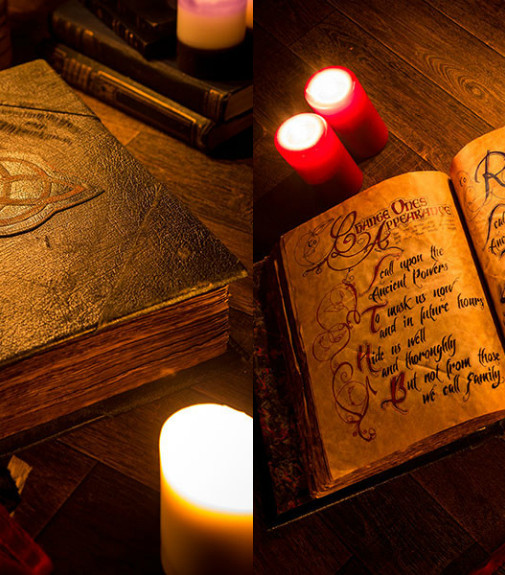 Change Ones
Appearance
I call upon the
Ancient Powers
To mask us now
and in future hours
Hide us well
and thoroughly
But not from those
we call Family
R